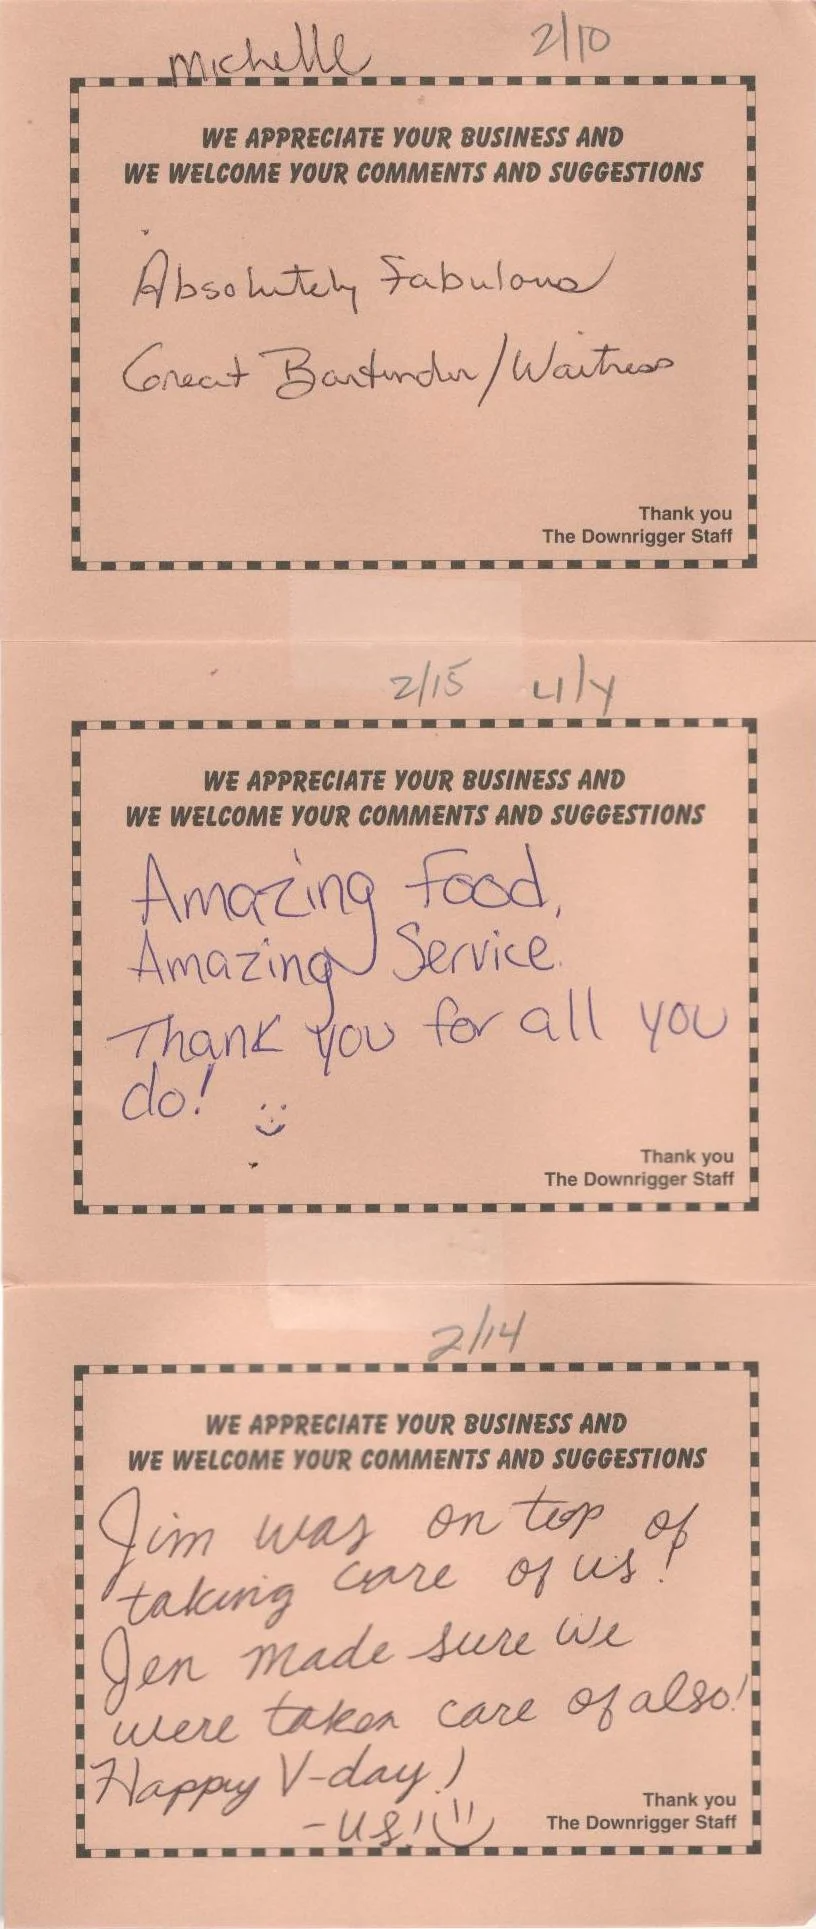 Michelle 2/10
WE APPRECIATE YOUR BUSINESS AND
WE WELCOME YOUR COMMENTS AND SUGGESTIONS
Absolutely Fabulous
Great Bartender/Waitress
Thank you
The Downrigger Staff
2/15
WE APPRECIATE YOUR BUSINESS AND
WE WELCOME YOUR COMMENTS AND SUGGESTIONS
Amazing Food,
Amazing Service.
Thank you for all you
do!
Thank you
The Downrigger Staff
2/14
WE APPRECIATE YOUR BUSINESS AND
WE WELCOME YOUR COMMENTS AND SUGGESTIONS
Jim was on top of
taking care of us!
Jen made sure we
were taken care of also!
Happy V-day!
- us!
Thank you
The Downrigger Staff